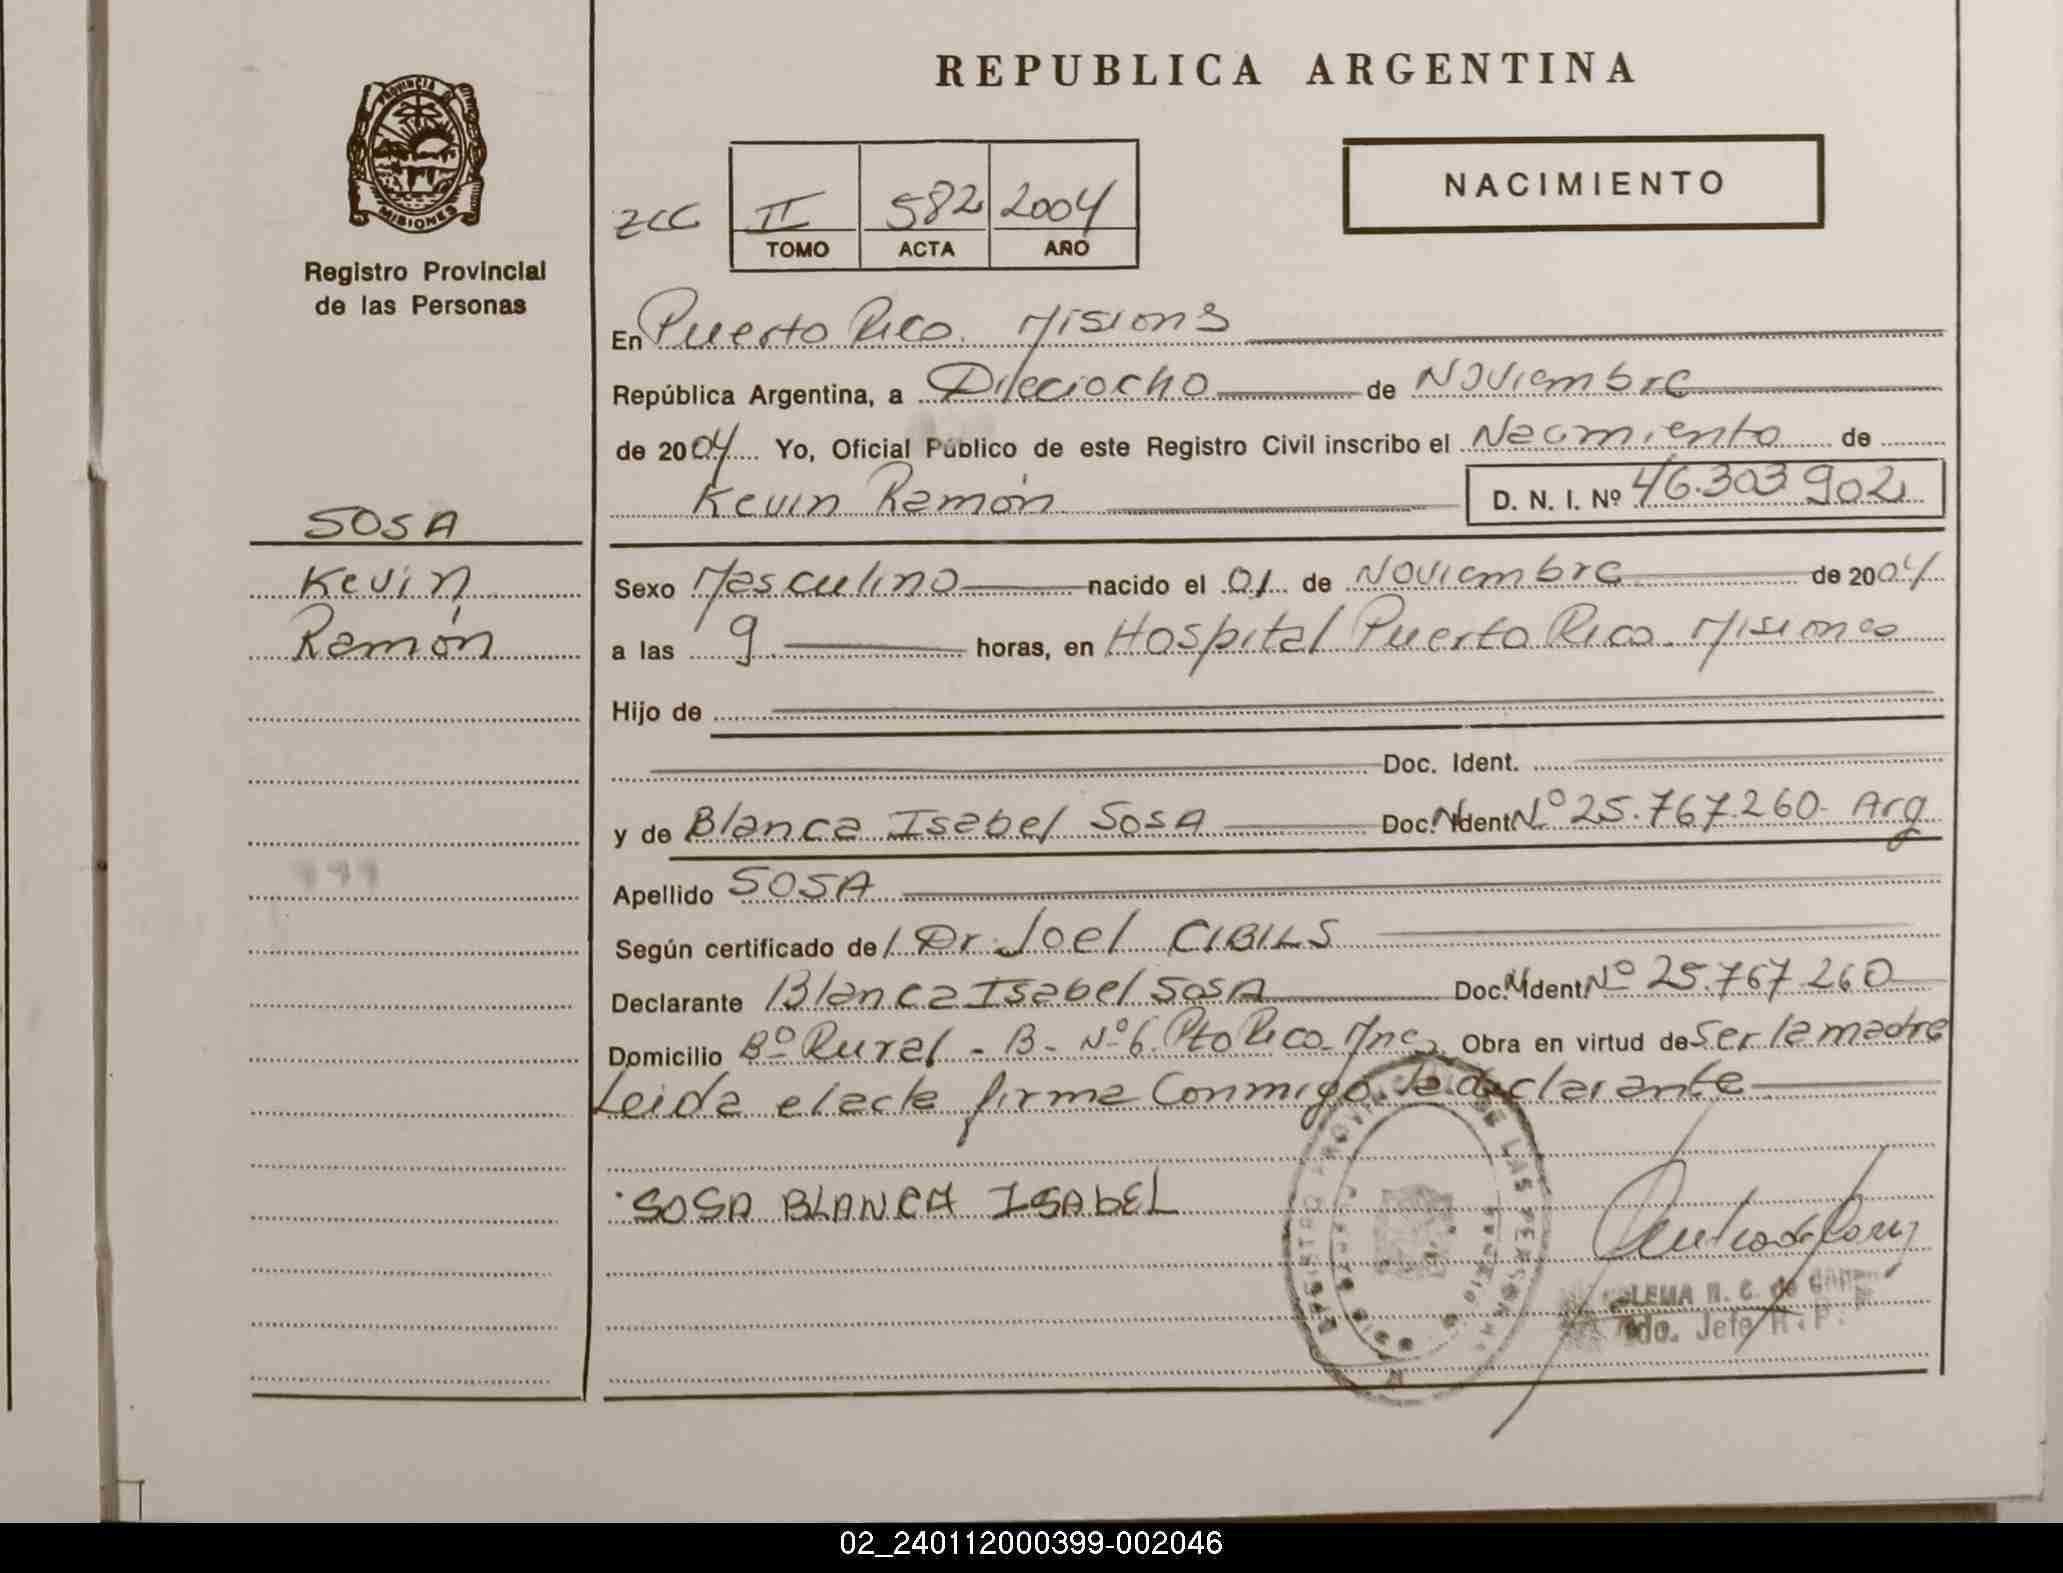 REPUBLICA ARGENTINA
NACIMIENTO
PROVINCIA DE
MISIONES
Registro Provincial
de las Personas
ZCC
II 582 2004
TOMO ACTA AÑO
En Puerto Rico. Misions
República Argentina, a Dieciocho de Noviembre
de 2004 Yo, Oficial Público de este Registro Civil inscribo el Nacimiento de
Kevin Ramón D. N. I. Nº 46.303.902
SOSA
Kevin
Ramón
Sexo Masculino nacido el 01 de Noviembre de 2004
a las 9 horas, en Hospital Puerto Rico. Misiones
Hijo de
Doc. Ident.
y de Blanca Isabel Sosa Doc. Ident. Nº 25.767.260 Arg
Apellido SOSA
Según certificado de Dr. Joel CIBILS
Declarante Blanca Isabel Sosa Doc. Ident. Nº 25.767.260
Domicilio Bº Rural - B - Nº 6. Pto Rico. Mnes Obra en virtud de Ser la madre
Leida el acta firma Conmigo la declarante
SOSA BLANCA ISABEL
LEMA R. C. de
Jefe R. P.
02_240112000399-002046